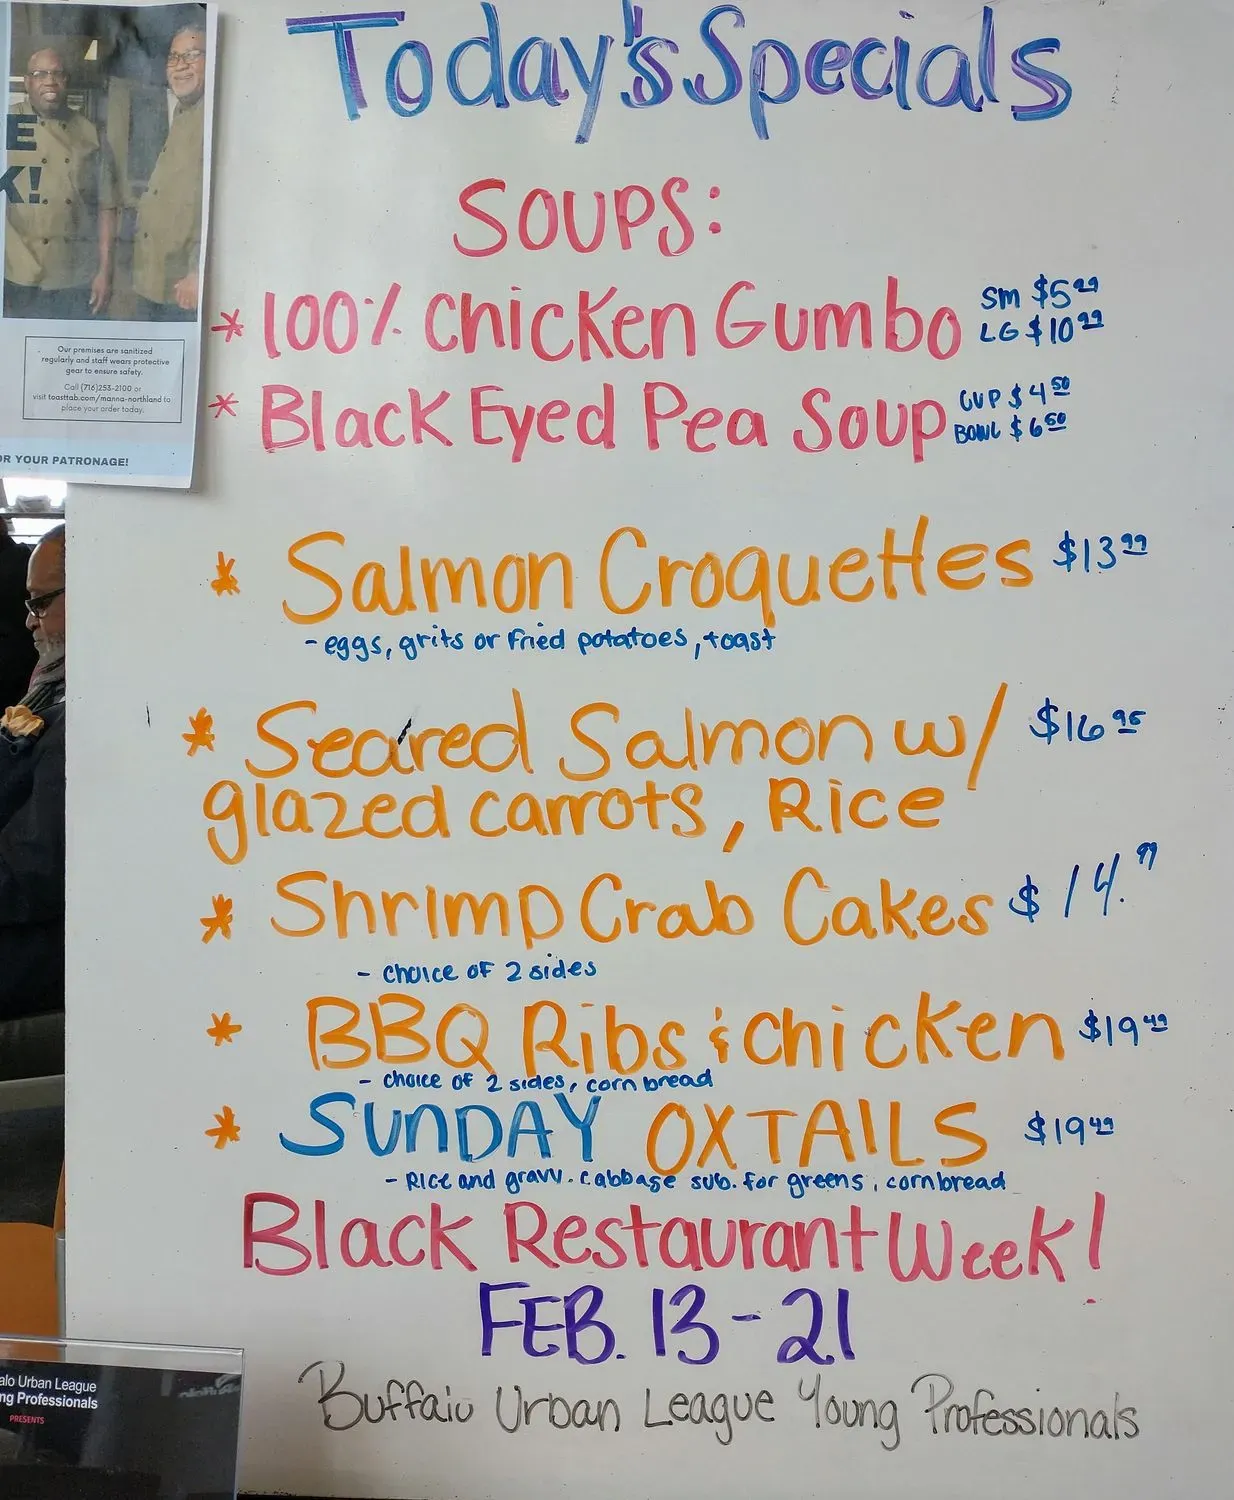 Today's Specials
SOUPS:
* 100% Chicken Gumbo SM $5.99
LG $10.99
* Black Eyed Pea Soup CUP $4.50
BOWL $6.50
* Salmon Croquettes $13.99
- eggs, grits or fried potatoes, toast
* Seared Salmon w/ $16.95
glazed carrots, Rice
* Shrimp Crab Cakes $14.99
- choice of 2 sides
* BBQ Ribs & Chicken $19.49
- choice of 2 sides, corn bread
* SUNDAY OXTAILS $19.49
- Rice and gravy. cabbage sub. for greens, cornbread
Black Restaurant Week!
FEB. 13-21
Buffalo Urban League Young Professionals
E
K!
Our premises are sanitized
regularly and staff wears protective
gear to ensure safety.
Call (716)253-2100 or
visit toasttab.com/manna-northland to
place your order today.
OR YOUR PATRONAGE!
alo Urban League
ng Professionals
PRESENTS